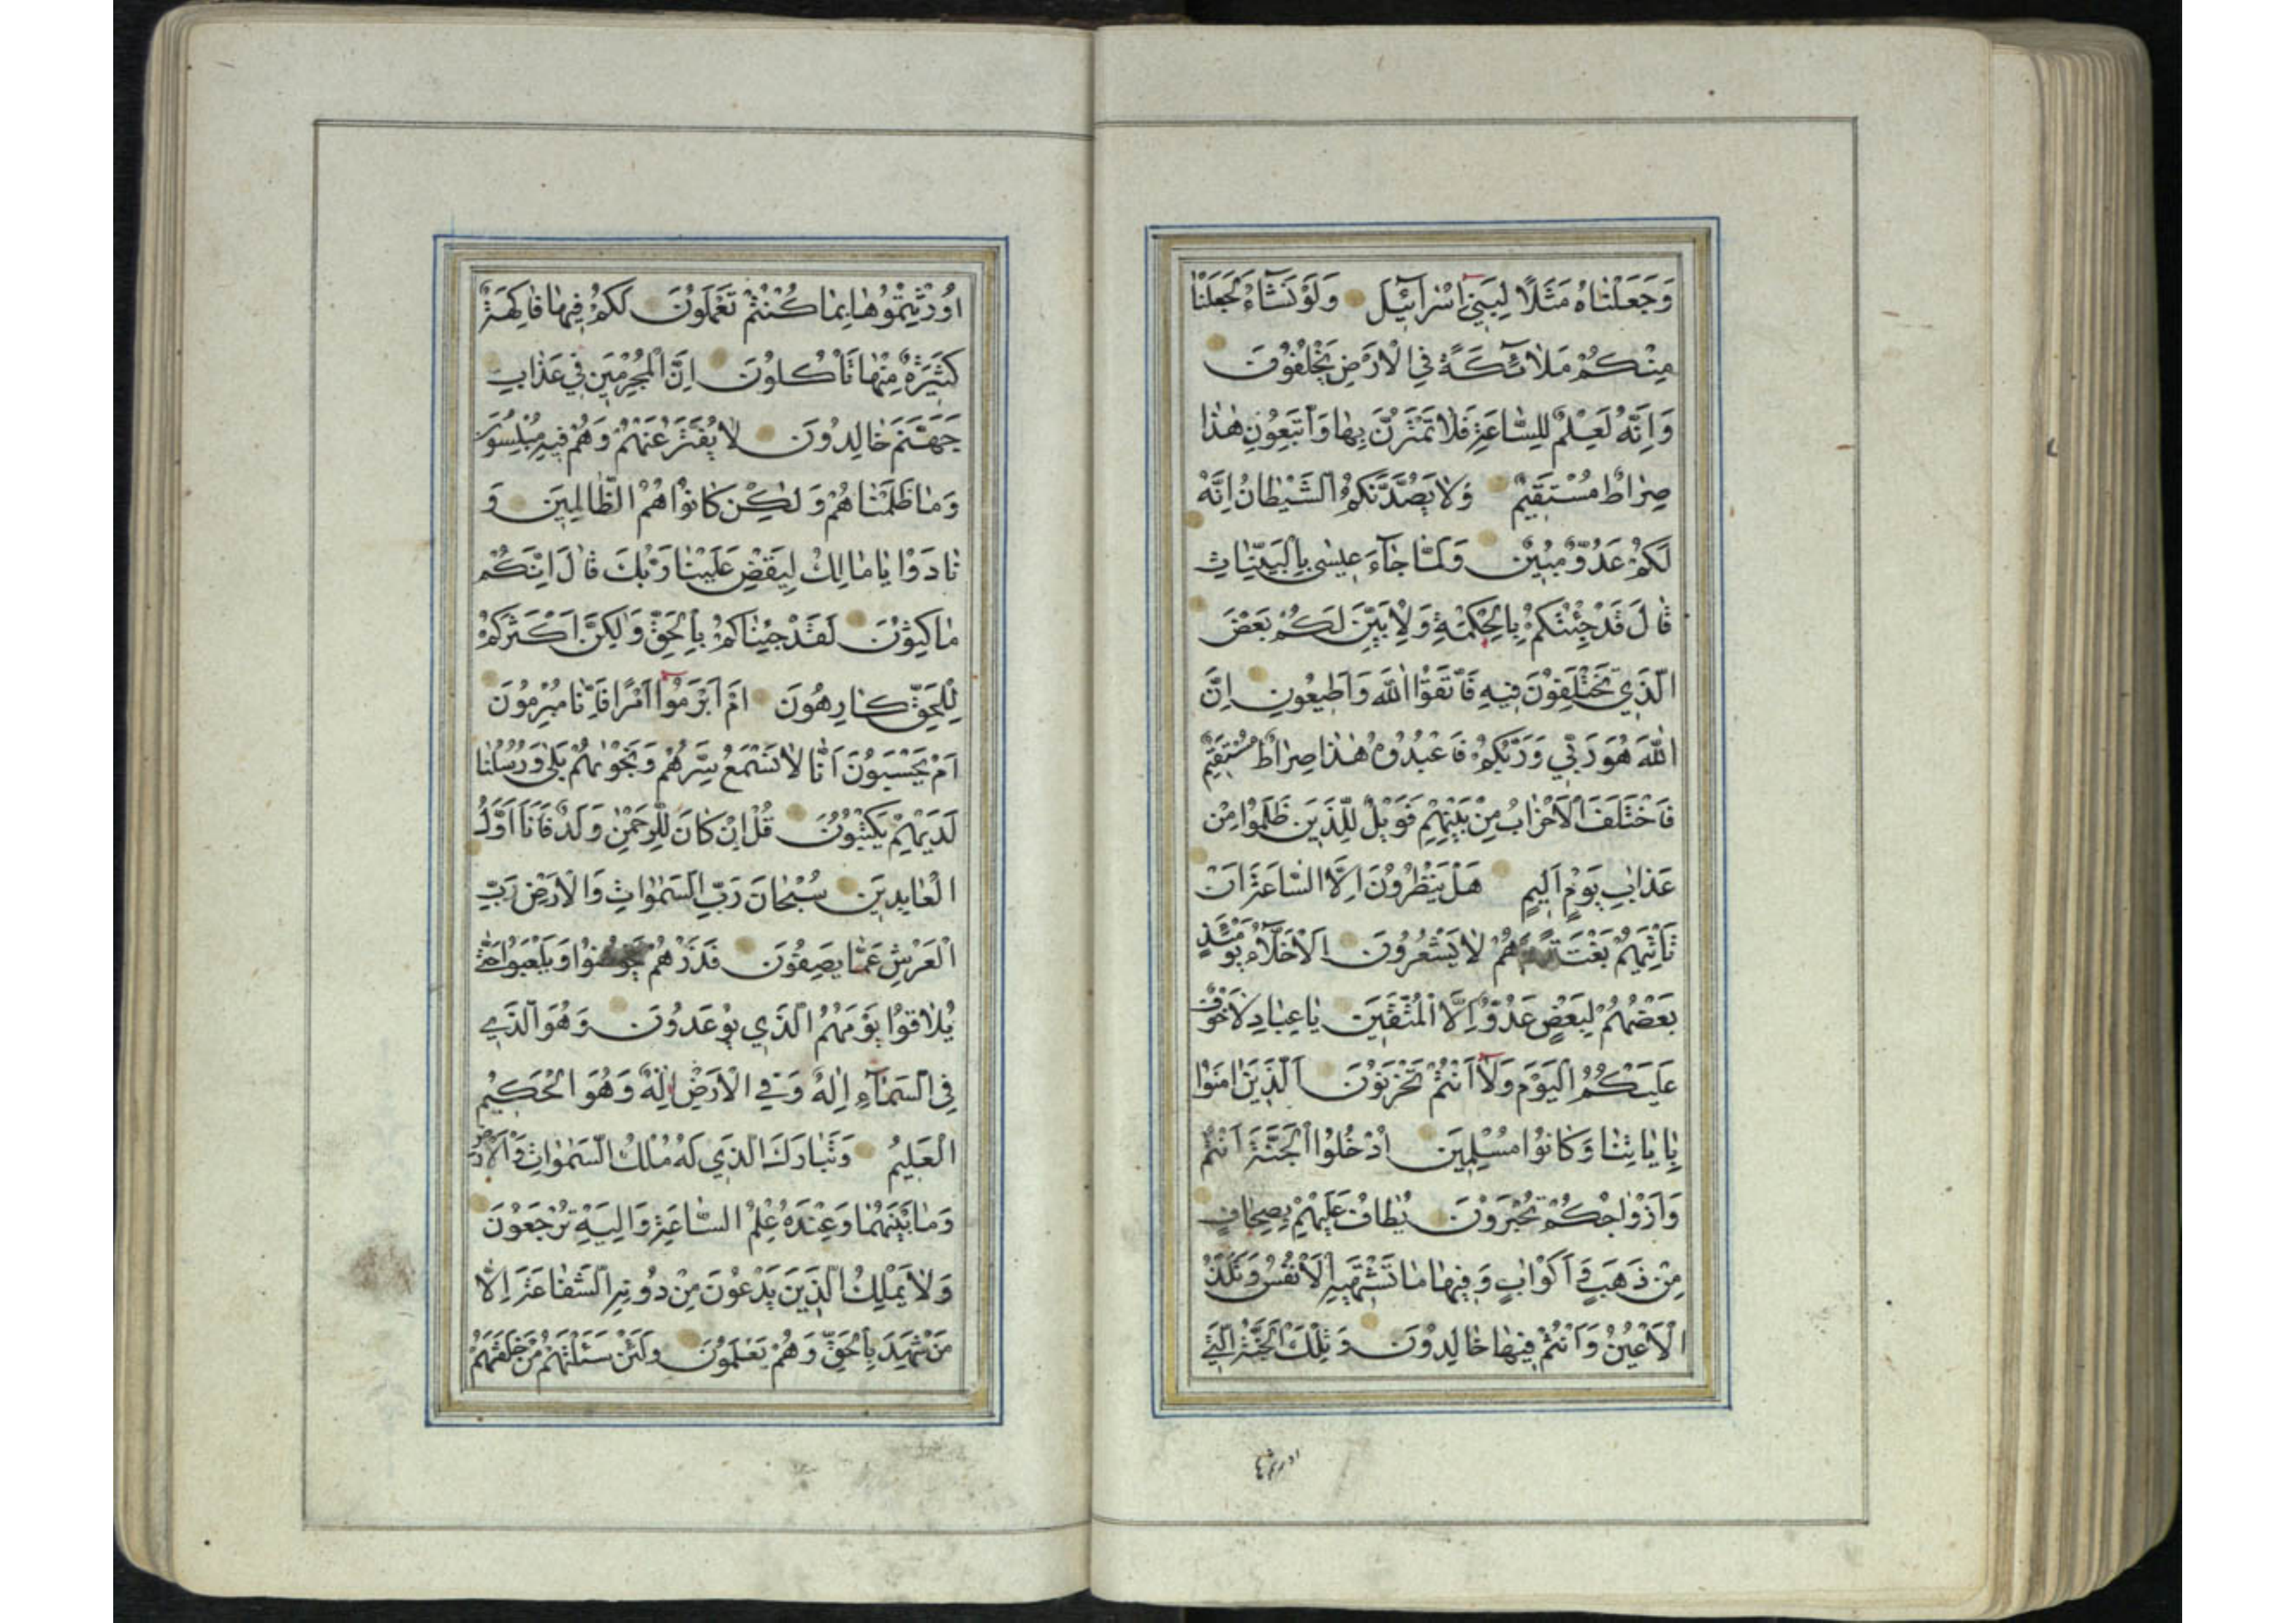 وَجَعَلْنَاهُ مَثَلًا لِبَنِي اِسْرَآئِيلَ وَلَوْ نَشَآءُ لَجَعَلْنَا
مِنْكُمْ مَلَائِكَةً فِي الْاَرْضِ يَخْلُفُونَ
وَاِنَّهُ لَعِلْمٌ لِلسَّاعَةِ فَلَا تَمْتَرُنَّ بِهَا وَاتَّبِعُونِ هٰذَا
صِرَاطٌ مُسْتَقِيمٌ وَلَا يَصُدَّنَّكُمُ الشَّيْطَانُ اِنَّهُ
لَكُمْ عَدُوٌّ مُبِينٌ وَلَمَّا جَآءَ عِيسٰى بِالْبَيِّنَاتِ
قَالَ قَدْ جِئْتُكُمْ بِالْحِكْمَةِ وَلِاُبَيِّنَ لَكُمْ بَعْضَ
الَّذِي تَخْتَلِفُونَ فِيهِ فَاتَّقُوا اللّٰهَ وَاَطِيعُونِ اِنَّ
اللّٰهَ هُوَ رَبِّي وَرَبُّكُمْ فَاعْبُدُوهُ هٰذَا صِرَاطٌ مُسْتَقِيمٌ
فَاخْتَلَفَ الْاَحْزَابُ مِنْ بَيْنِهِمْ فَوَيْلٌ لِلَّذِينَ ظَلَمُوا مِنْ
عَذَابِ يَوْمٍ اَلِيمٍ هَلْ يَنْظُرُونَ اِلَّا السَّاعَةَ اَنْ
تَأْتِيَهُمْ بَغْتَةً وَهُمْ لَا يَشْعُرُونَ اَلْاَخِلَّآءُ يَوْمَئِذٍ
بَعْضُهُمْ لِبَعْضٍ عَدُوٌّ اِلَّا الْمُتَّقِينَ يَا عِبَادِ لَا خَوْفٌ
عَلَيْكُمُ الْيَوْمَ وَلَآ اَنْتُمْ تَحْزَنُونَ اَلَّذِينَ اٰمَنُوا
بِاٰيَاتِنَا وَكَانُوا مُسْلِمِينَ اُدْخُلُوا الْجَنَّةَ اَنْتُمْ
وَاَزْوَاجُكُمْ تُحْبَرُونَ يُطَافُ عَلَيْهِمْ بِصِحَافٍ
مِنْ ذَهَبٍ وَاَكْوَابٍ وَفِيهَا مَا تَشْتَهِيهِ الْاَنْفُسُ وَتَلَذُّ
الْاَعْيُنُ وَاَنْتُمْ فِيهَا خَالِدُونَ وَتِلْكَ الْجَنَّةُ الَّتِي
اورثتموها
اُورِثْتُمُوهَا بِمَا كُنْتُمْ تَعْمَلُونَ لَكُمْ فِيهَا فَاكِهَةٌ
كَثِيرَةٌ مِنْهَا تَأْكُلُونَ اِنَّ الْمُجْرِمِينَ فِي عَذَابِ
جَهَنَّمَ خَالِدُونَ لَا يُفَتَّرُ عَنْهُمْ وَهُمْ فِيهِ مُبْلِسُونَ
وَمَا ظَلَمْنَاهُمْ وَلٰكِنْ كَانُوا هُمُ الظَّالِمِينَ وَ
نَادَوْا يَا مَالِكُ لِيَقْضِ عَلَيْنَا رَبُّكَ قَالَ اِنَّكُمْ
مَاكِثُونَ لَقَدْ جِئْنَاكُمْ بِالْحَقِّ وَلٰكِنَّ اَكْثَرَكُمْ
لِلْحَقِّ كَارِهُونَ اَمْ اَبْرَمُوا اَمْرًا فَاِنَّا مُبْرِمُونَ
اَمْ يَحْسَبُونَ اَنَّا لَا نَسْمَعُ سِرَّهُمْ وَنَجْوٰيهُمْ بَلٰى وَرُسُلُنَا
لَدَيْهِمْ يَكْتُبُونَ قُلْ اِنْ كَانَ لِلرَّحْمٰنِ وَلَدٌ فَاَنَا اَوَّلُ
الْعَابِدِينَ سُبْحَانَ رَبِّ السَّمٰوَاتِ وَالْاَرْضِ رَبِّ
الْعَرْشِ عَمَّا يَصِفُونَ فَذَرْهُمْ يَخُوضُوا وَيَلْعَبُوا حَتّٰى
يُلَاقُوا يَوْمَهُمُ الَّذِي يُوعَدُونَ وَهُوَ الَّذِي
فِي السَّمَآءِ اِلٰهٌ وَفِي الْاَرْضِ اِلٰهٌ وَهُوَ الْحَكِيمُ
الْعَلِيمُ وَتَبَارَكَ الَّذِي لَهُ مُلْكُ السَّمٰوَاتِ وَالْاَرْضِ
وَمَا بَيْنَهُمَا وَعِنْدَهُ عِلْمُ السَّاعَةِ وَاِلَيْهِ تُرْجَعُونَ
وَلَا يَمْلِكُ الَّذِينَ يَدْعُونَ مِنْ دُونِهِ الشَّفَاعَةَ اِلَّا
مَنْ شَهِدَ بِالْحَقِّ وَهُمْ يَعْلَمُونَ وَلَئِنْ سَئَلْتَهُمْ مَنْ خَلَقَهُمْ